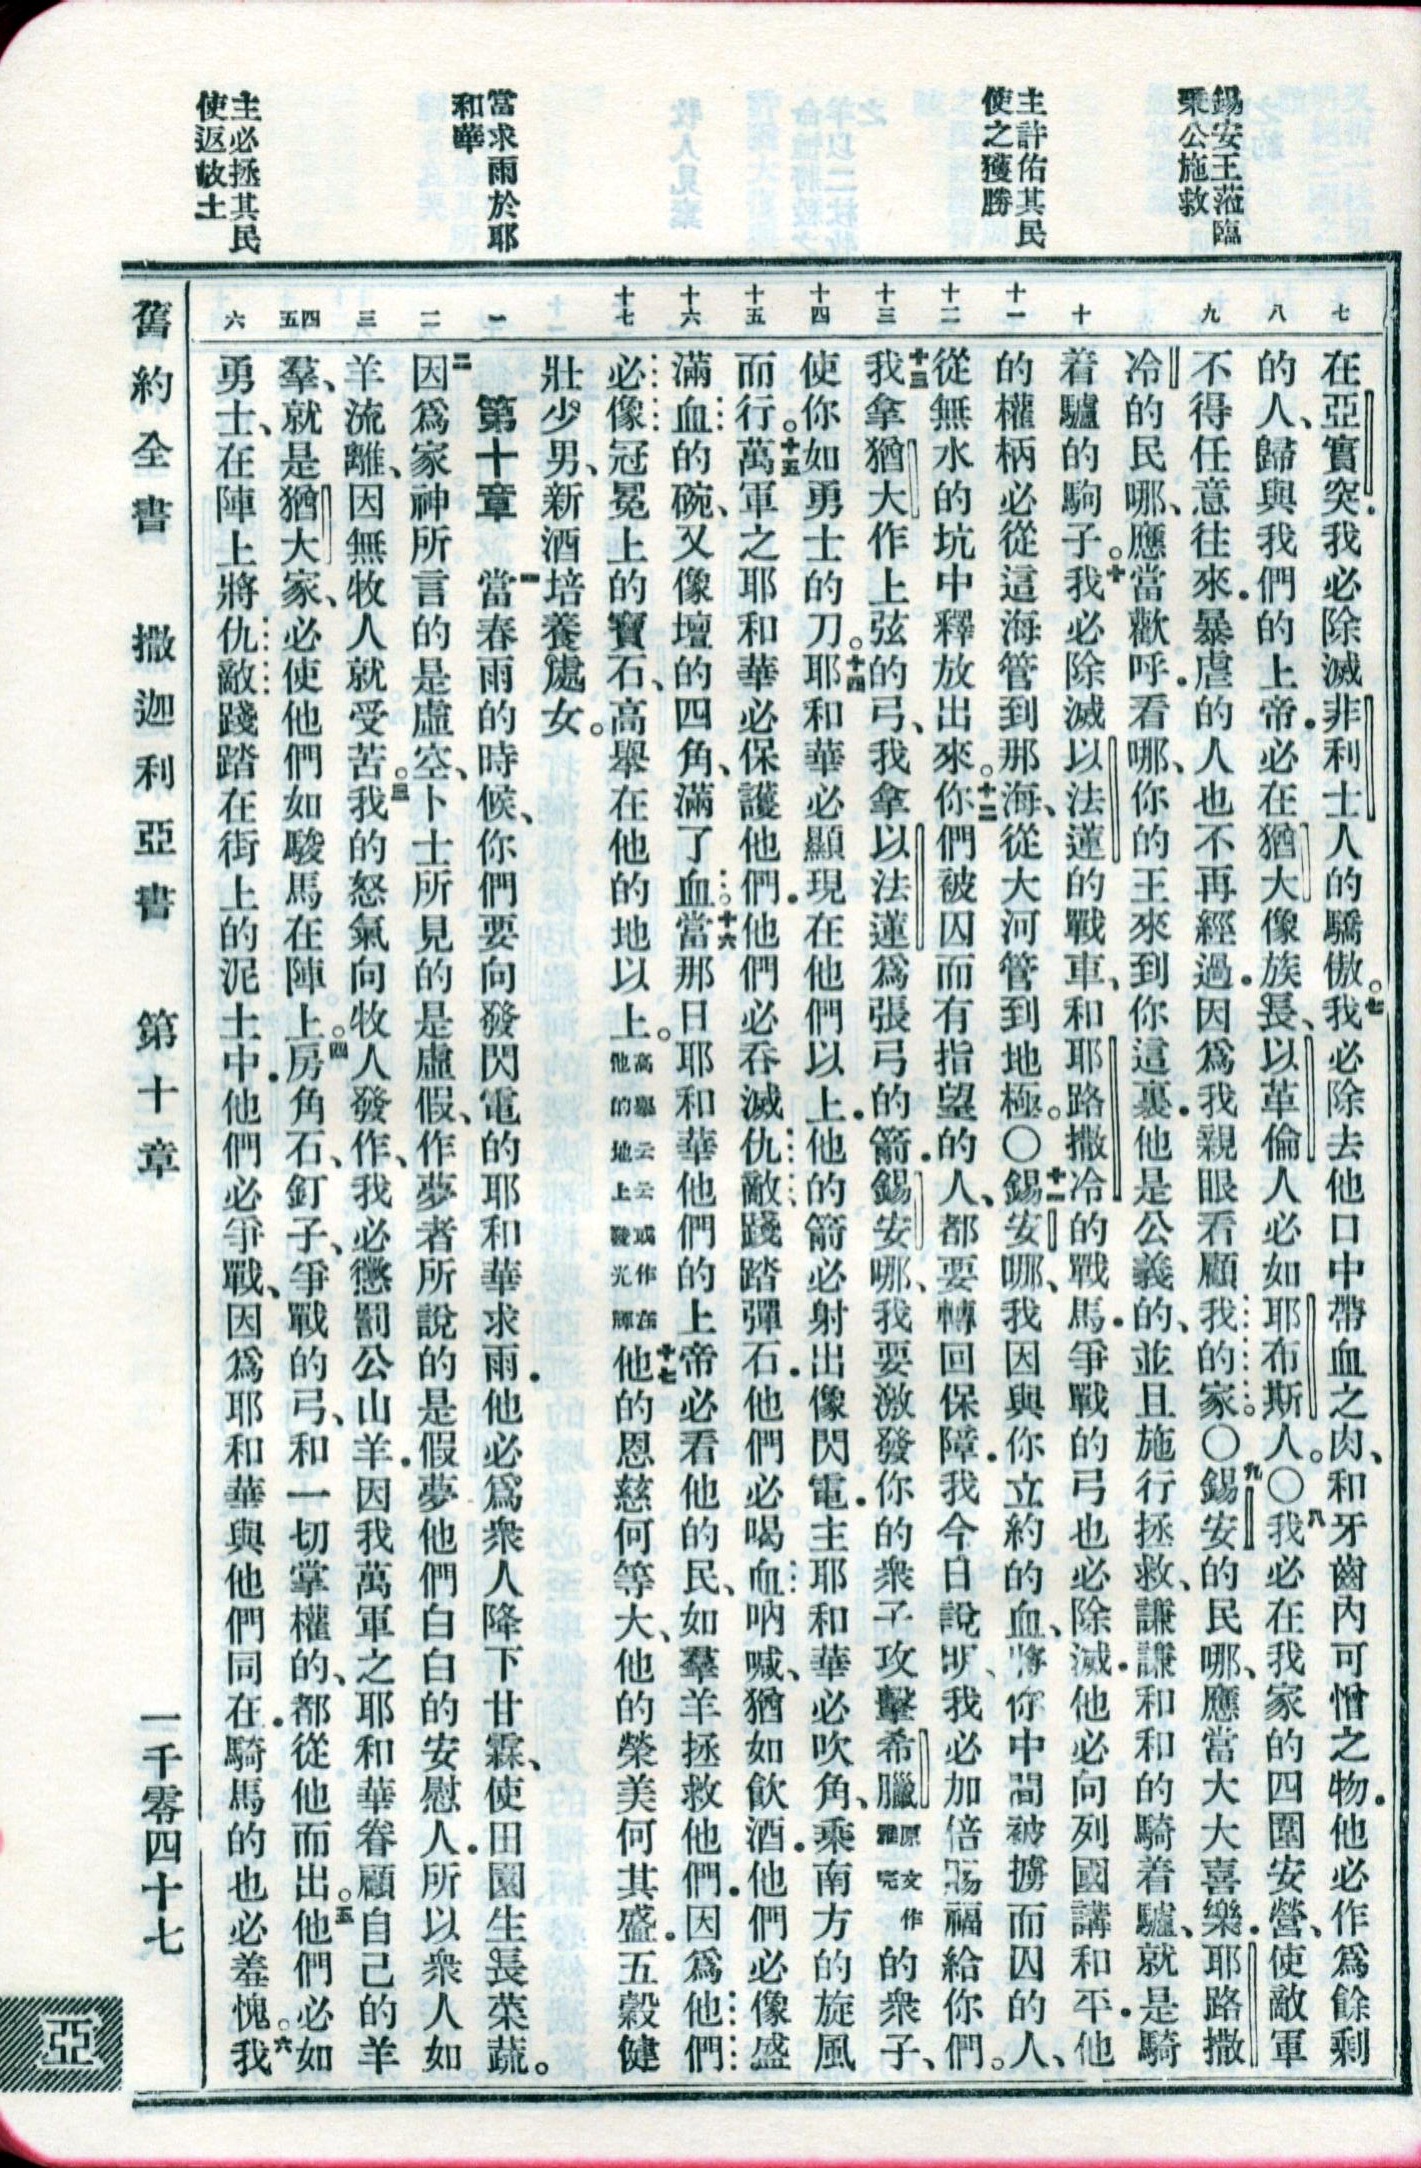 錫安王蒞臨
秉公施救
主許佑其民
使之獲勝
當求雨於耶
和華
主必拯其民
使返故土
七
八
九
十
十一
十二
十三
十四
十五
十六
十七
一
二
三
四五
六
在亞實突我必除滅非利士人的驕傲。七我必除去他口中帶血之肉、和牙齒內可憎之物．他必作爲餘剩
的人、歸與我們的上帝．必在猶大像族長、以革倫人必如耶布斯人。○八我必在我家的四圍安營、使敵軍
不得任意往來．暴虐的人也不再經過．因爲我親眼看顧我的家。○九錫安的民哪、應當大大喜樂．耶路撒
冷的民哪、應當歡呼．看哪、你的王來到你這裏．他是公義的、並且施行拯救、謙謙和和的騎着驢、就是騎
着驢的駒子。十我必除滅以法蓮的戰車、和耶路撒冷的戰馬．爭戰的弓也必除滅．他必向列國講和平．他
的權柄必從這海管到那海、從大河管到地極。○十一錫安哪、我因與你立約的血、將你中間被擄而囚的人、
從無水的坑中釋放出來。十二你們被囚而有指望的人、都要轉回保障．我今日說明、我必加倍賜福給你們。
十三我拿猶大作上弦的弓、我拿以法蓮爲張弓的箭．錫安哪、我要激發你的衆子、攻擊希臘原文作雅完的衆子、
使你如勇士的刀。十四耶和華必顯現在他們以上．他的箭必射出像閃電．主耶和華必吹角、乘南方的旋風
而行。十五萬軍之耶和華必保護他們．他們必吞滅仇敵、踐踏彈石．他們必喝血吶喊、猶如飲酒．他們必像盛
滿血的碗、又像壇的四角、滿了血。十六當那日耶和華他們的上帝必看他的民、如羣羊拯救他們．因爲他們
必像冠冕上的寶石、高舉在他的地以上。高舉云云或作在他的地上發光輝十七他的恩慈何等大、他的榮美何其盛．五穀健
壯少男、新酒培養處女。
第十章 一當春雨的時候、你們要向發閃電的耶和華求雨．他必爲衆人降下甘霖、使田園生長菜蔬。
二因爲家神所言的是虛空、卜士所見的是虛假、作夢者所說的是假夢、他們白白的安慰人．所以衆人如
羊流離、因無牧人就受苦。三我的怒氣向牧人發作、我必懲罰公山羊．因我萬軍之耶和華眷顧自己的羊
羣、就是猶大家、必使他們如駿馬在陣上。四房角石、釘子、爭戰的弓、和一切掌權的、都從他而出。五他們必如
勇士、在陣上將仇敵踐踏在街上的泥土中．他們必爭戰、因爲耶和華與他們同在．騎馬的也必羞愧。六我
舊約全書 撒迦利亞書 第十章 一千零四十七
亞